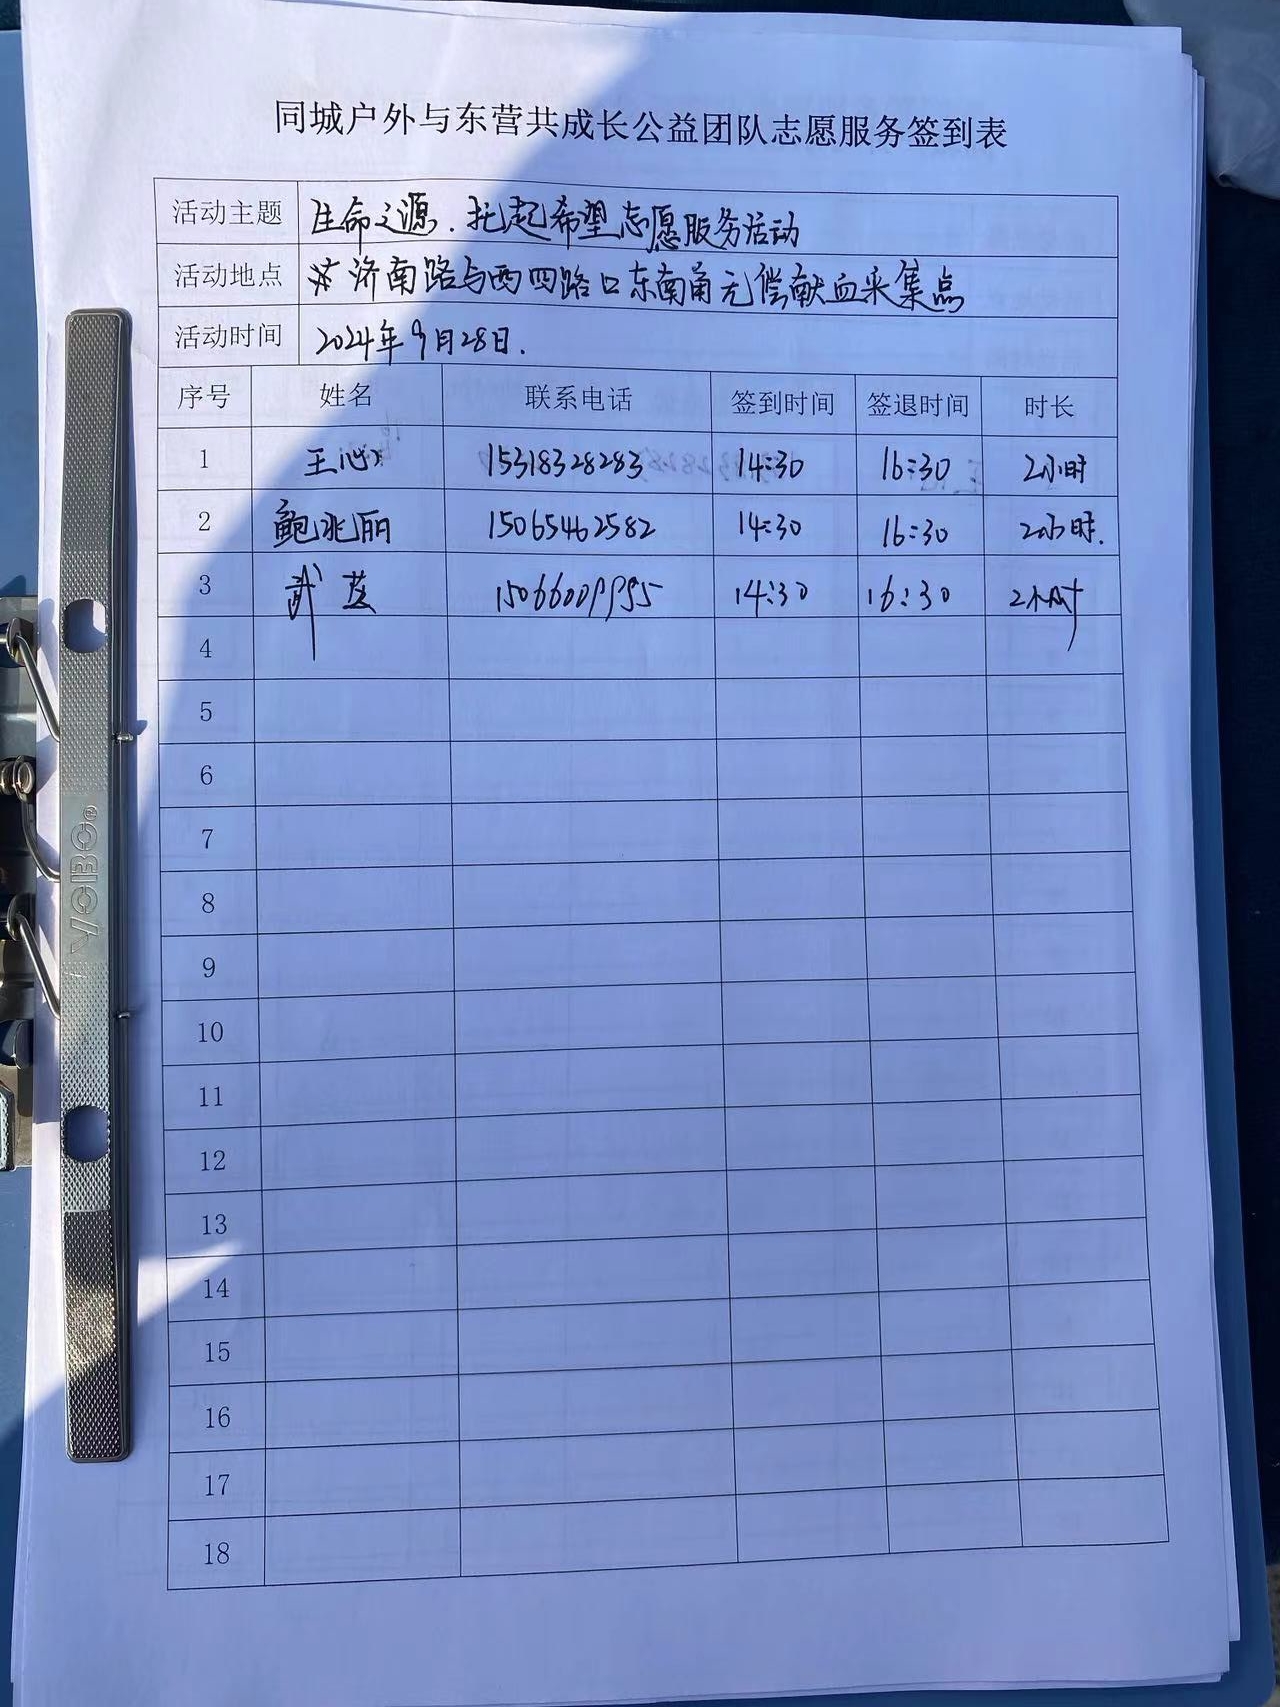 同城户外与东营共成长公益团队志愿服务签到表
活动主题 生命之源.托起希望志愿服务活动
活动地点 济南路与西四路口东南角无偿献血采集点
活动时间 2024年9月28日.
序号 姓名 联系电话 签到时间 签退时间 时长
1 王心 15318328283 14:30 16:30 2小时
2 鲍兆丽 15065462582 14:30 16:30 2小时.
3 武 14:30 16:30 2小时
4
5
6
7
8
9
10
11
12
13
14
15
16
17
18
YOBO®